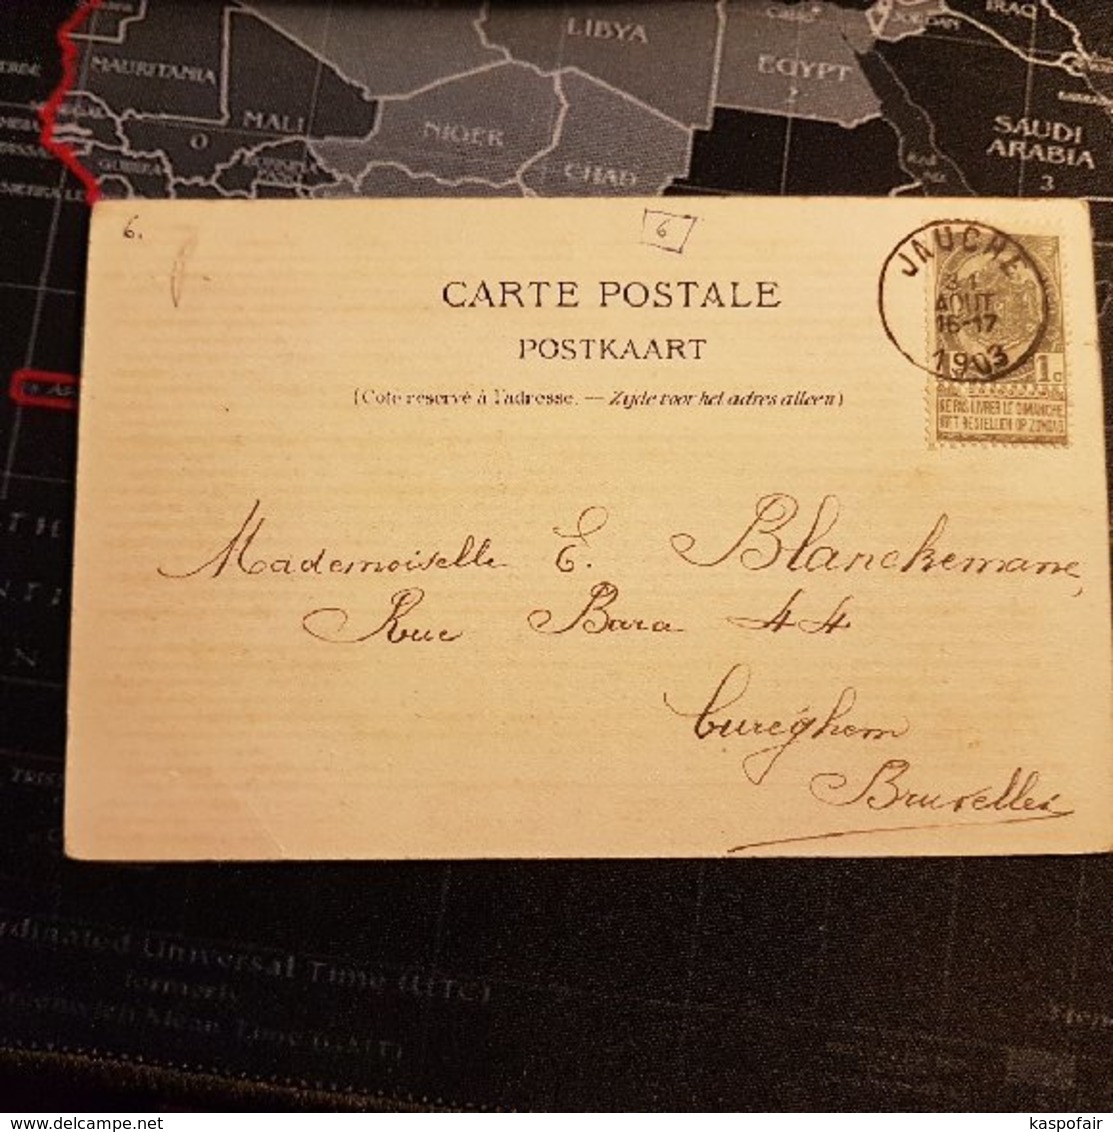 LIBYA
EGYPT
JORDAN
IRAQ
MAURITANIA
MALI
NIGER
CHAD
SAUDI
ARABIA
3
0
6.
6
JAUCHE
31
AOUT
16-17
1903
1c
NE PAS LIVRER LE DIMANCHE
NIET BESTELLEN OP ZONDAG
CARTE POSTALE
POSTKAART
(Côté réservé à l'adresse. — Zijde voor het adres alleen)
Mademoiselle E. Blanckemane,
Rue Bara 44
Cureghem
Bruxelles
Universal Time (UTC)
formerly
Mean Time (GMT)
kaspofair